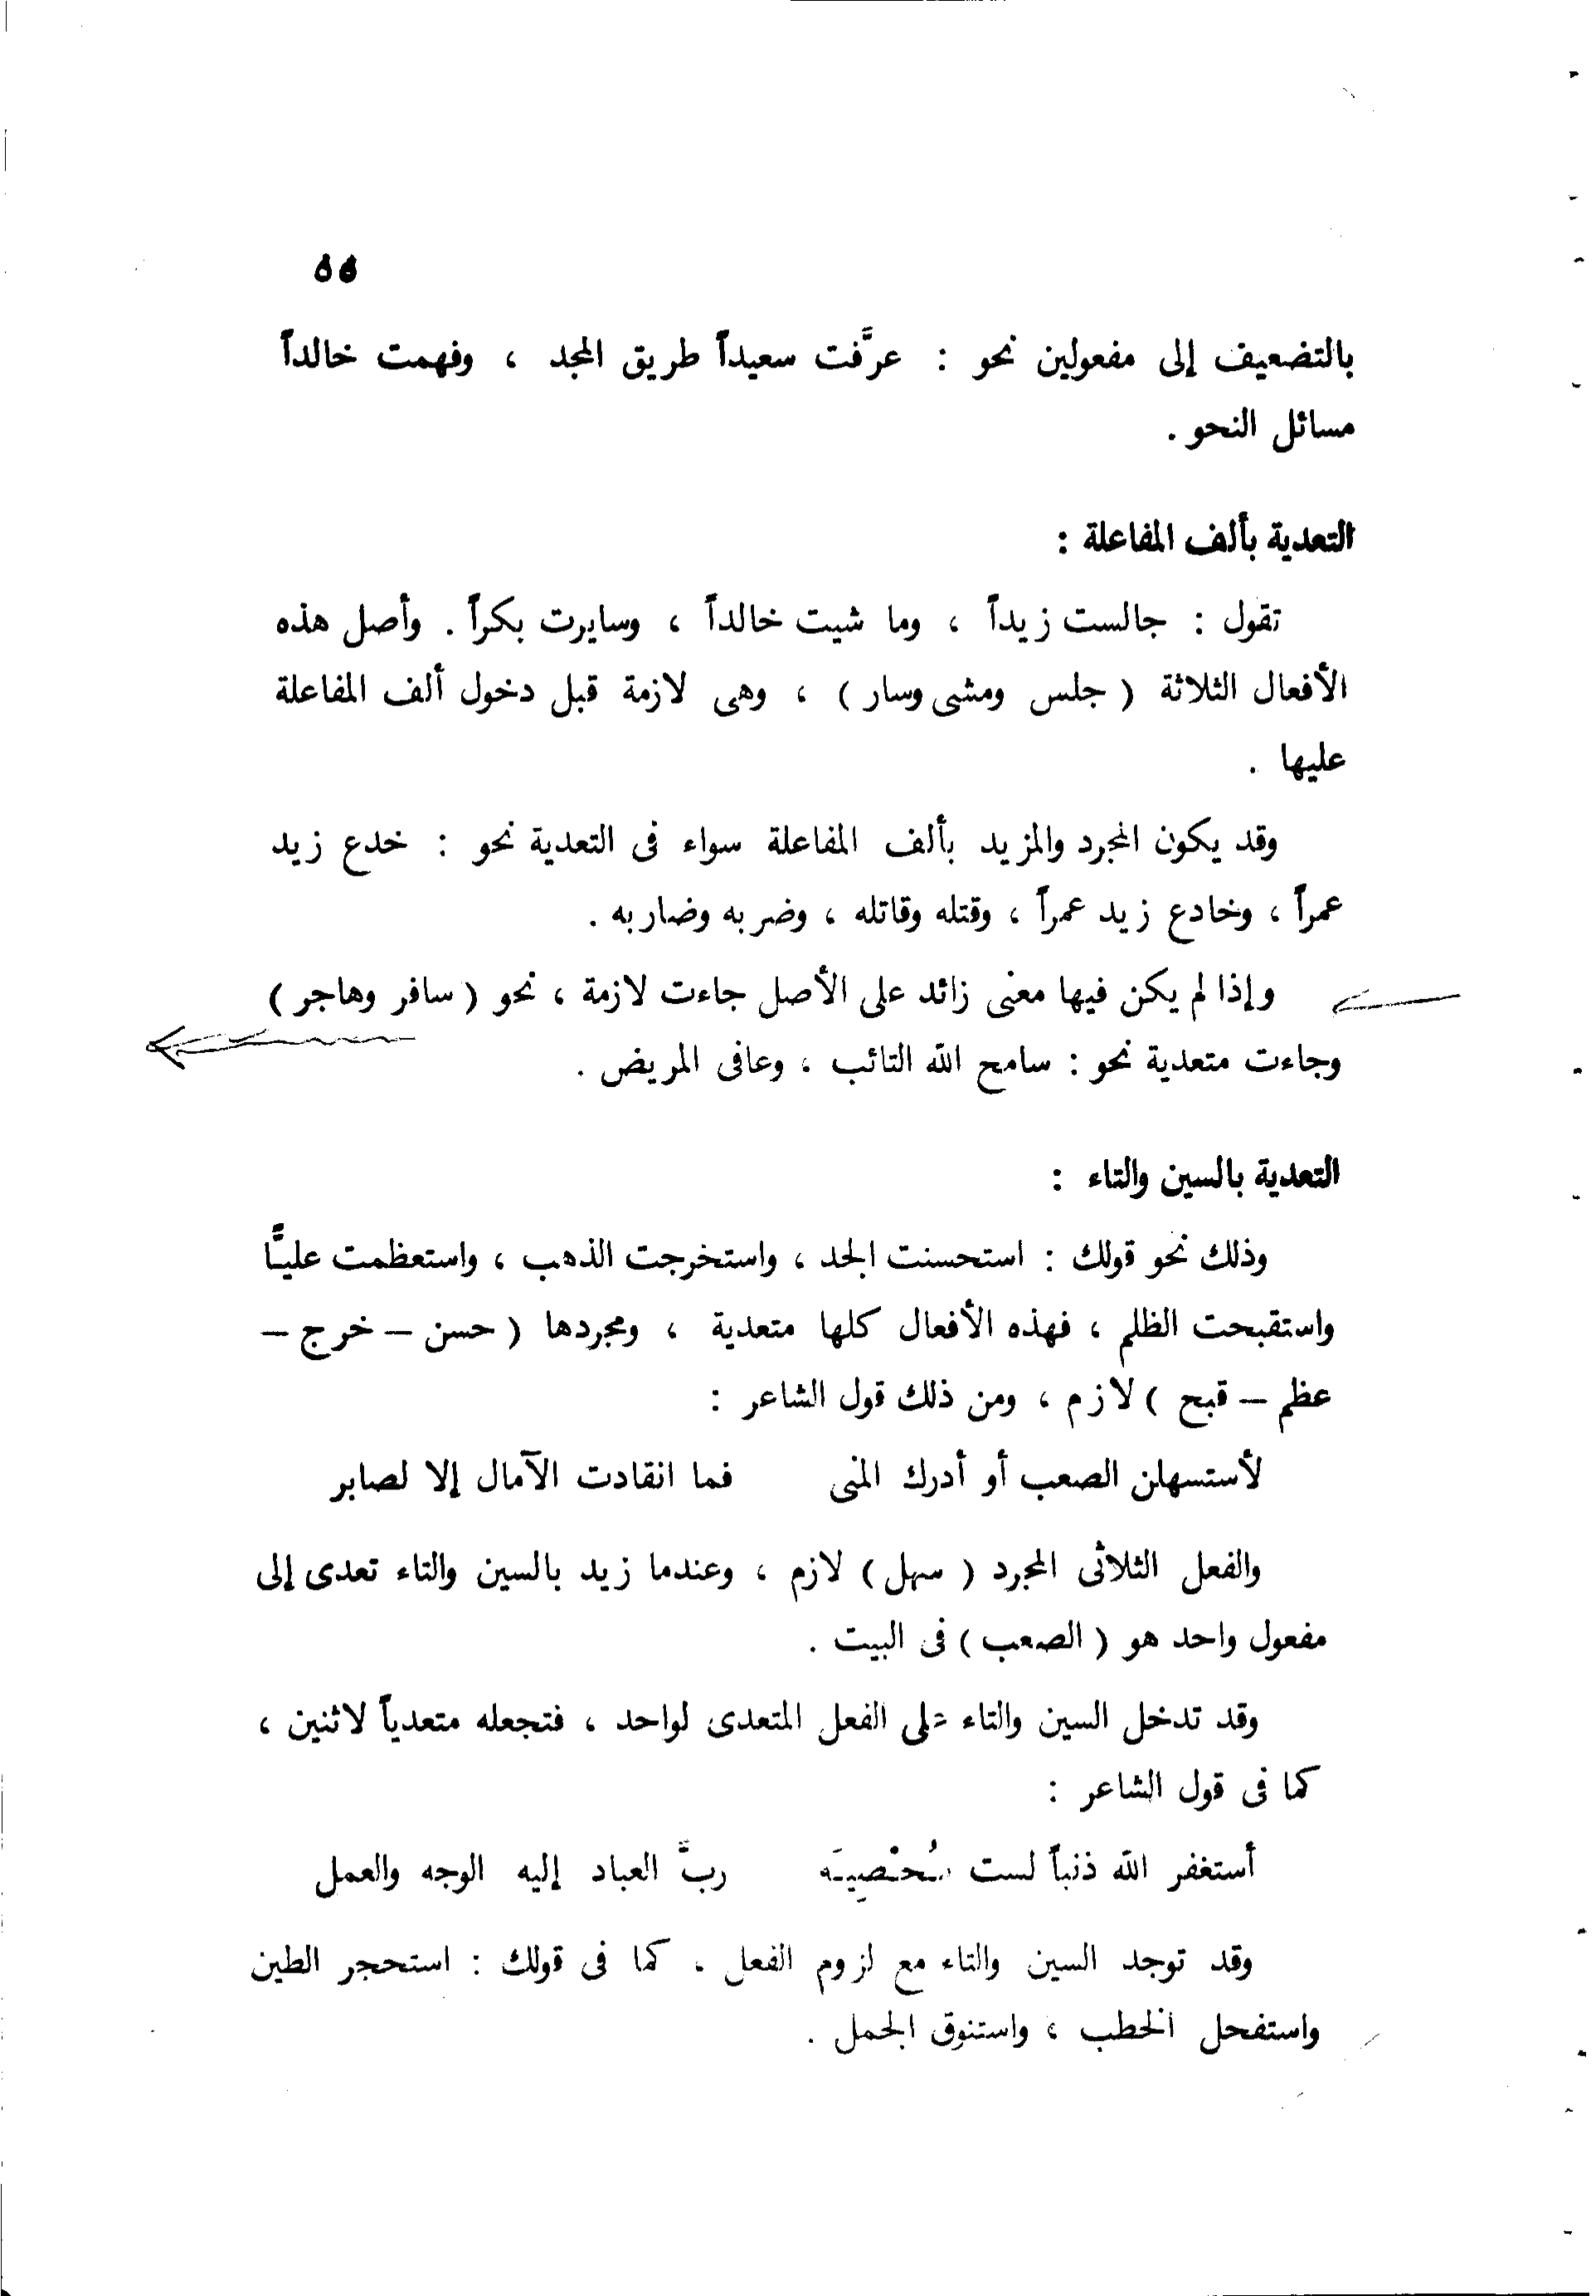 ٥٥
بالتضعيف إلى مفعولين نحو : عرَّفت سعيداً طريق المجد ، وفهمت خالداً
مسائل النحو .
التعدية بألف المفاعلة :
تقول : جالست زيداً ، وما شيت خالداً ، وسايرت بكراً . وأصل هذه
الأفعال الثلاثة ( جلس ومشى وسار ) ، وهى لازمة قبل دخول ألف المفاعلة
عليها .
وقد يكون المجرد والمزيد بألف المفاعلة سواء فى التعدية نحو : خدع زيد
عمراً ، وخادع زيد عمراً ، وقتله وقاتله ، وضربه وضاربه .
وإذا لم يكن فيها معنى زائد على الأصل جاءت لازمة ، نحو ( سافر وهاجر )
وجاءت متعدية نحو : سامح الله التائب ، وعافى المريض .
التعدية بالسين والتاء :
وذلك نحو قولك : استحسنت الجد ، واستخرجت الذهب ، واستعظمت عليًّا
واستقبحت الظلم ، فهذه الأفعال كلها متعدية ، ومجردها ( حسن – خرج –
عظم – قبح ) لازم ، ومن ذلك قول الشاعر :
لأستسهلن الصعب أو أدرك المنى فما انقادت الآمال إلا لصابر
والفعل الثلاثى المجرد ( سهل ) لازم ، وعندما زيد بالسين والتاء تعدى إلى
مفعول واحد هو ( الصعب ) فى البيت .
وقد تدخل السين والتاء على الفعل المتعدى لواحد ، فتجعله متعدياً لاثنين ،
كما فى قول الشاعر :
أستغفر الله ذنباً لست مُحْصِيَه ربَّ العباد إليه الوجه والعمل
وقد توجد السين والتاء مع لزوم الفعل ، كما فى قولك : استحجر الطين
واستفحل الخطب ، واستنوق الجمل .